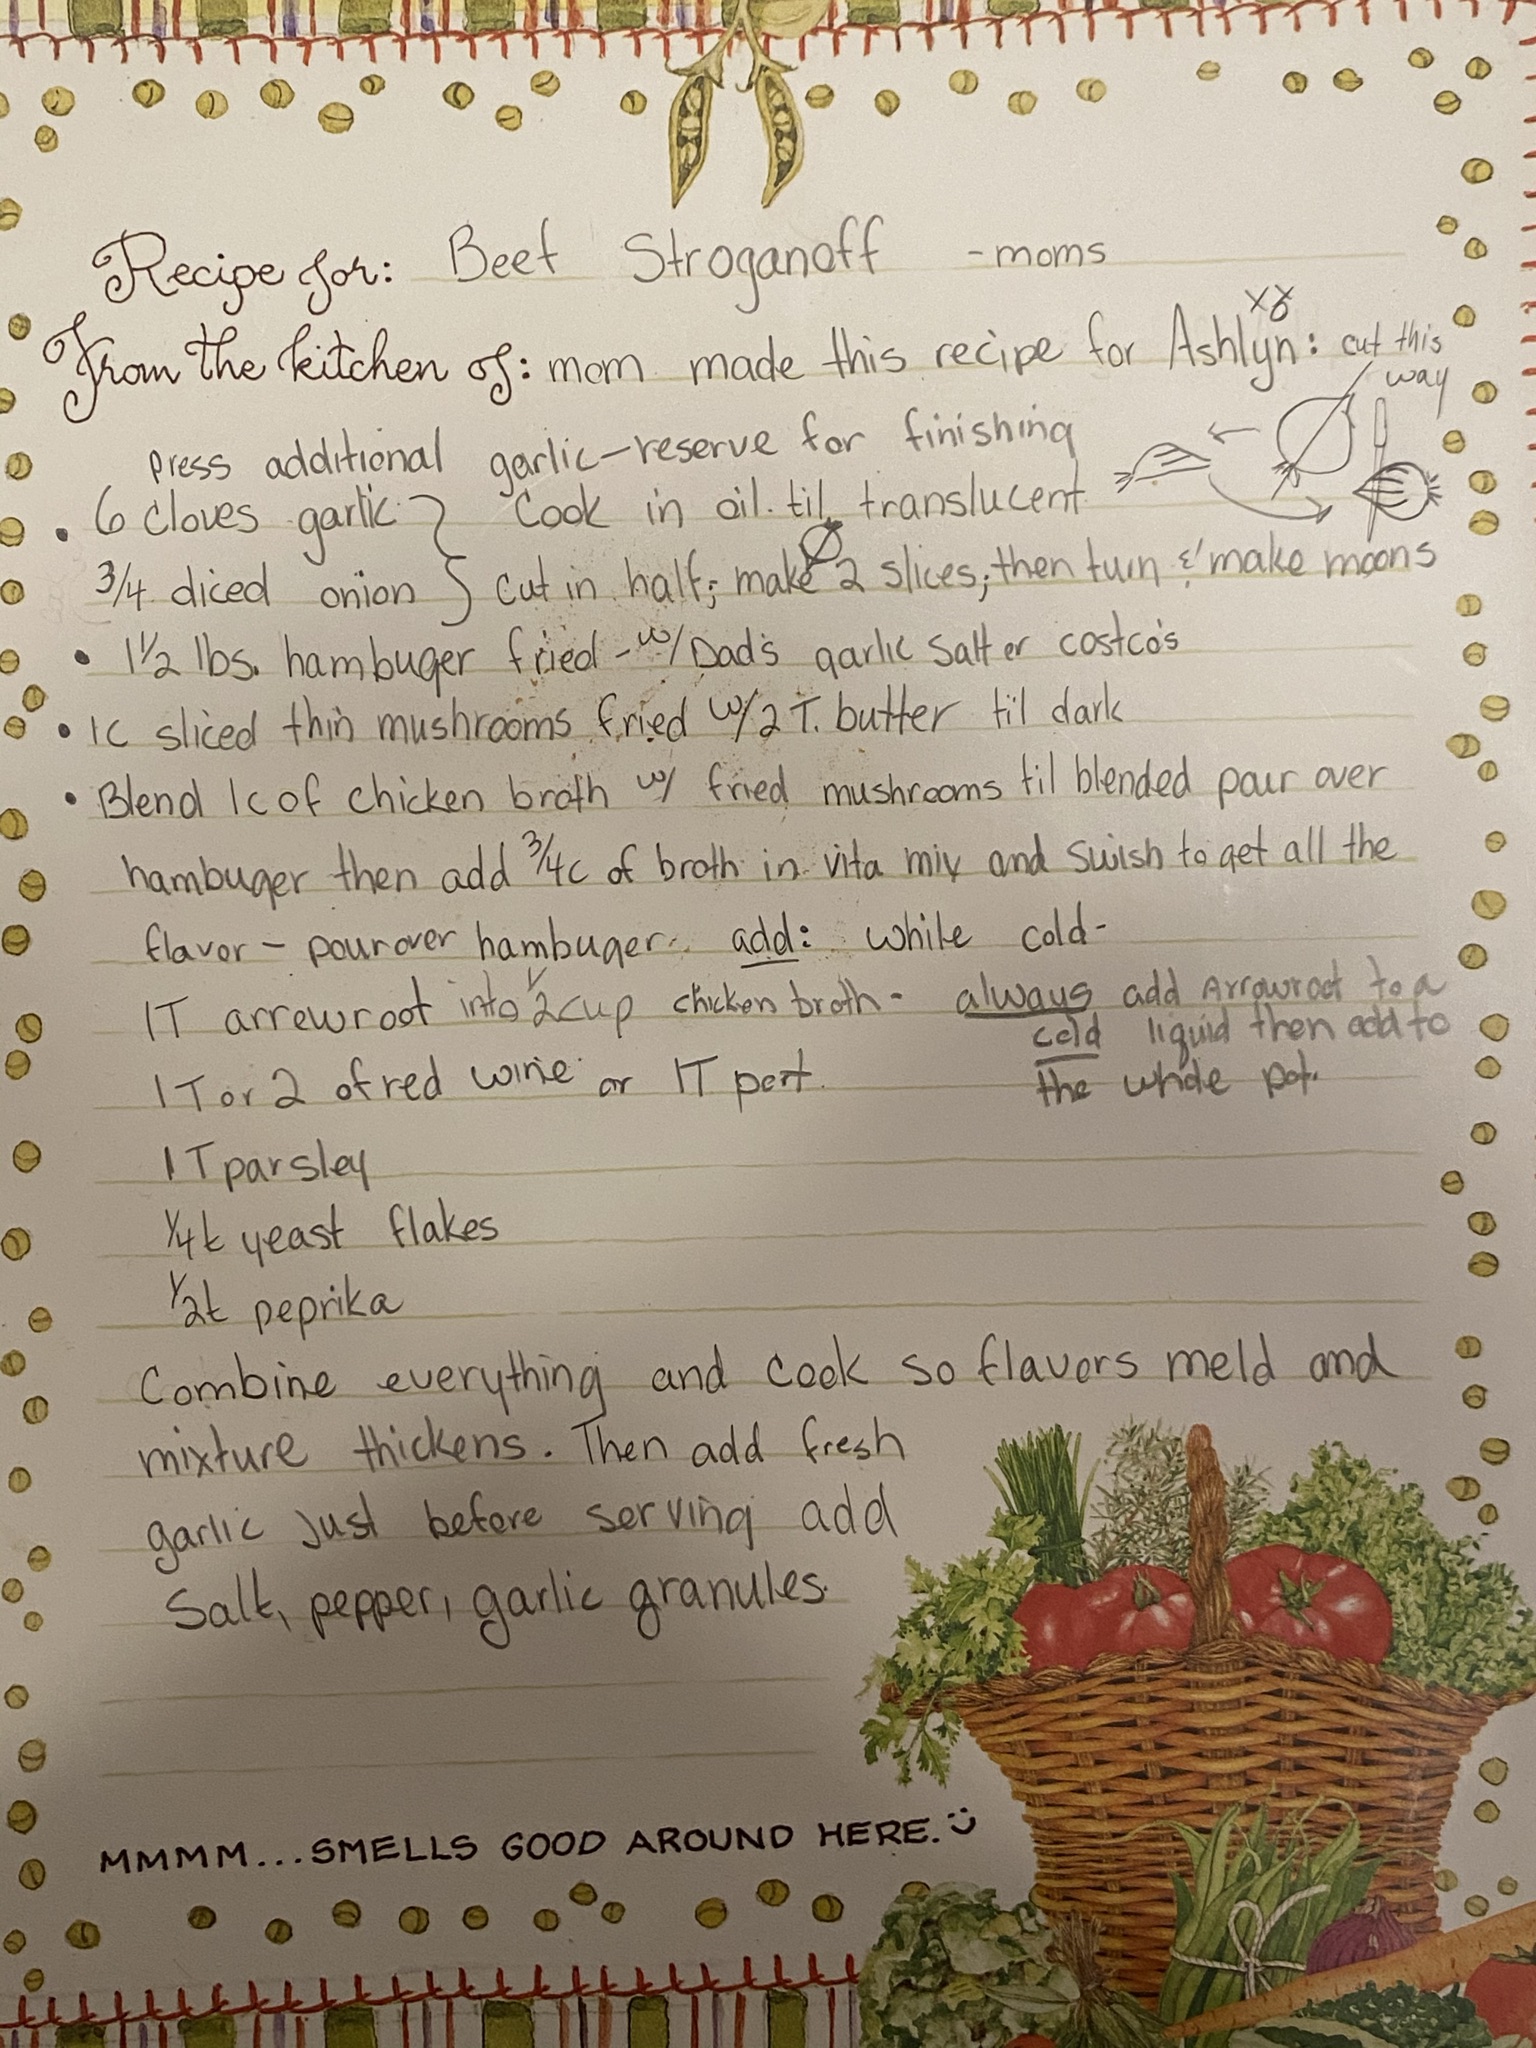 Recipe for: Beef Stroganoff - moms
From the kitchen of: mom made this recipe for Ashlyn:
cut this
way
press additional garlic - reserve for finishing
• 6 cloves garlic } Cook in oil til translucent
3/4 diced onion } cut in half; make 2 slices, then turn & make moons
• 1 1/2 lbs. hambuger fried - w/ Dad's garlic salt or costco's
• 1c sliced thin mushrooms fried w/ 2 T. butter til dark
• Blend 1c of chicken broth w/ fried mushrooms til blended pour over
hambuger then add 3/4c of broth in vita mix and swish to get all the
flavor - pour over hambuger. add: while cold -
1T arrewroot into 1/2 cup chicken broth - always add Arrowroot to a
cold liquid then add to
the whole pot.
1 T or 2 of red wine or 1T port
1 T parsley
1/4 t yeast flakes
1/2t peprika
Combine everything and cook so flavors meld and
mixture thickens. Then add fresh
garlic just before serving add
Salt, pepper, garlic granules.
MMMM...SMELLS GOOD AROUND HERE.